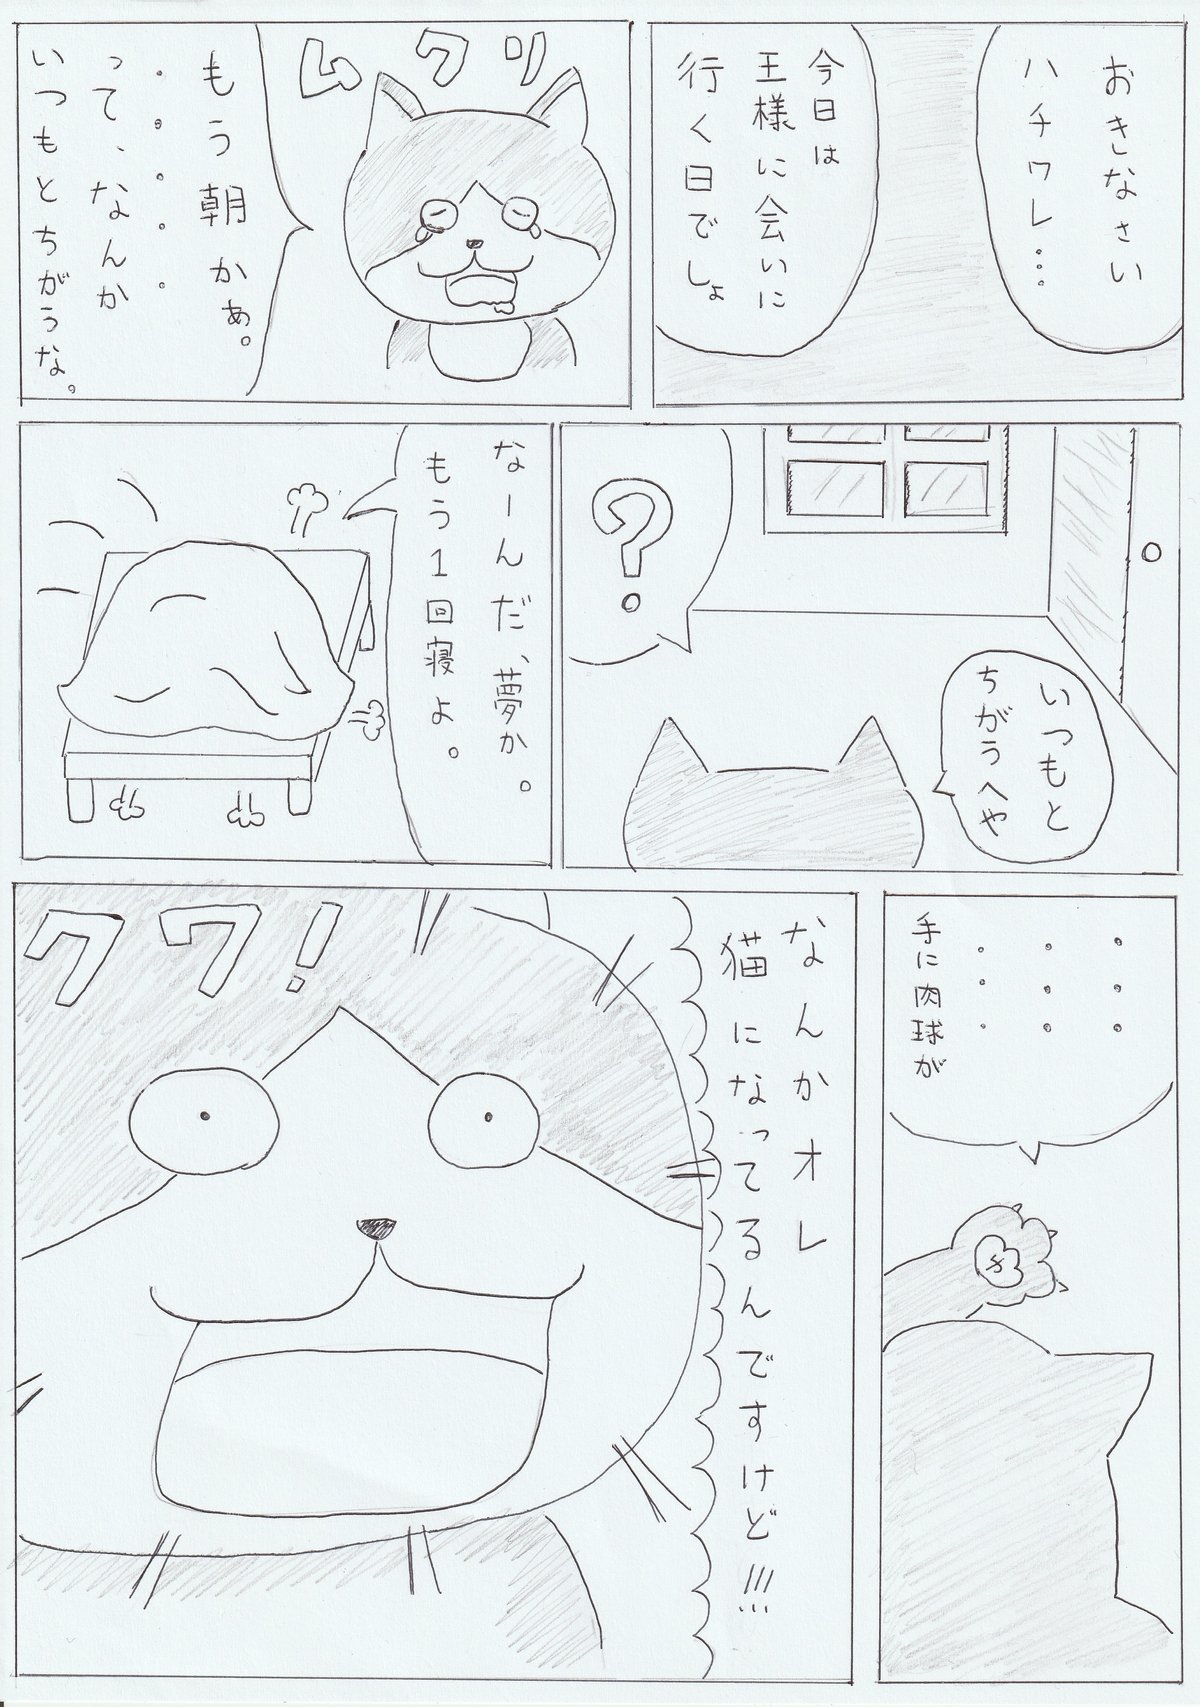 おきなさい
ハチワレ…
今日は
王様に会いに
行く日でしょ
ムクリ
もう朝かぁ。
・・・・・
って、なんか
いつもとちがうな。
いつもと
ちがうへや
?
なーんだ、夢か。
もう1回寝よ。
・・・
・・・
・・・
手に肉球が
なんかオレ
猫になってるんですけど!!!
クワ!